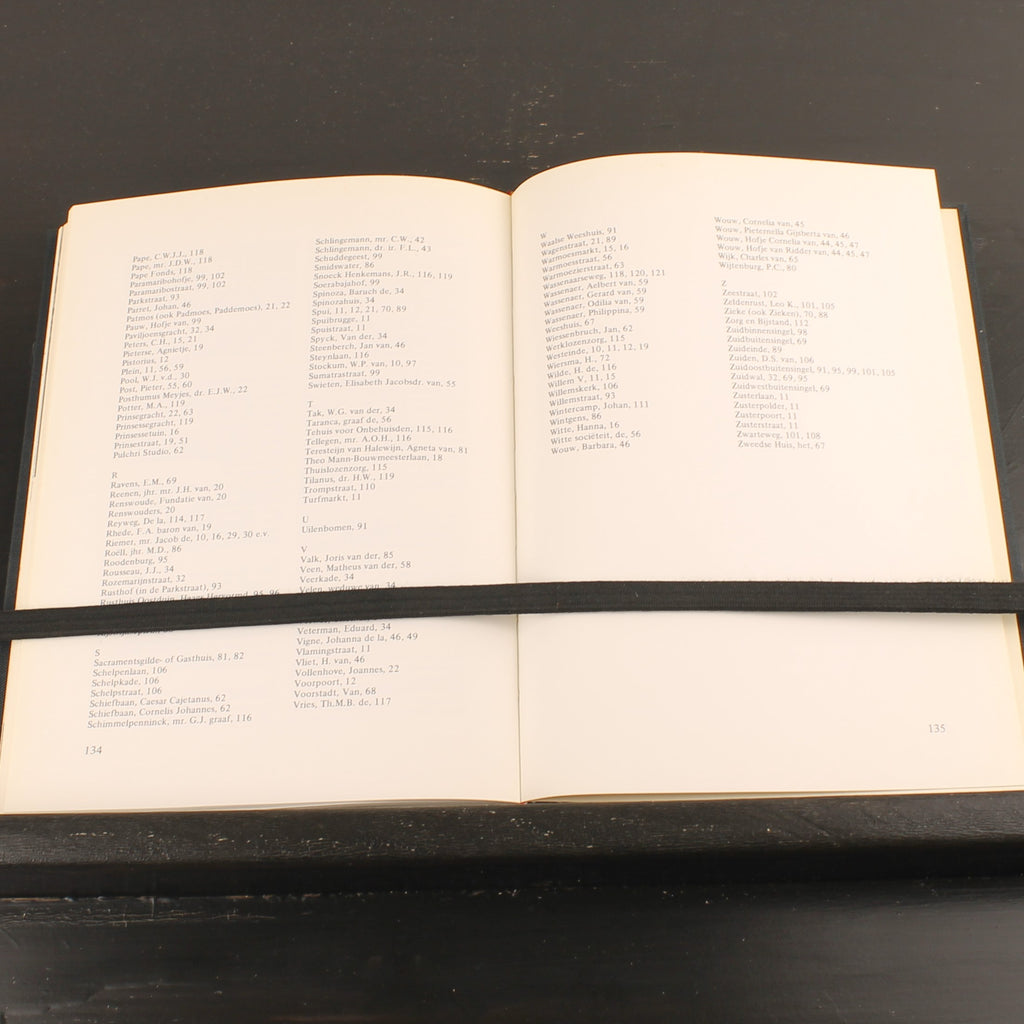 Pape, C.W.J.J., 118
Pape, mr. J.D.W., 118
Pape Fonds, 118
Paramaribohofje, 99, 102
Paramaribostraat, 99, 102
Parkstraat, 93
Parret, Johan, 46
Patmos (ook Padmoes, Paddemoes), 21, 22
Pauw, Hofje van, 99
Paviljoensgracht, 32, 34
Peters, C.H., 15, 21
Pieterse, Agnietje, 19
Pistorius, 12
Plein, 11, 56, 59
Pool, W.J. v.d., 30
Post, Pieter, 55, 60
Posthumus Meyjes, dr. E.J.W., 22
Potter, M.A., 119
Prinsegracht, 22, 63
Prinsessegracht, 119
Prinsessetuin, 16
Prinsestraat, 19, 51
Pulchri Studio, 62
R
Ravens, E.M., 69
Reenen, jhr. mr. J.H. van, 20
Renswoude, Fundatie van, 20
Renswouders, 20
Reyweg, De la, 114, 117
Rhede, F.A. baron van, 19
Riemer, mr. Jacob de, 10, 16, 29, 30 e.v.
Roëll, jhr. M.D., 86
Roodenburg, 95
Rousseau, J.J., 34
Rozemarijnstraat, 32
Rusthof (in de Parkstraat), 93
Rusthuis Oostduin, Haags Hervormd, 95, 96
S
Sacramentsgilde- of Gasthuis, 81, 82
Schelpenlaan, 106
Schelpkade, 106
Schelpstraat, 106
Schiefbaan, Caesar Cajetanus, 62
Schiefbaan, Cornelis Johannes, 62
Schimmelpenninck, mr. G.J. graaf, 116
134
Schlingemann, mr. C.W., 42
Schlingemann, dr. ir. F.L., 43
Schuddegeest, 99
Smidswater, 86
Snoeck Henkemans, J.R., 116, 119
Soerabajahof, 99
Spinoza, Baruch de, 34
Spinozahuis, 34
Spui, 11, 12, 21, 70, 89
Spuibrugge, 11
Spuistraat, 11
Spyck, Van der, 34
Steenberch, Jan van, 46
Steynlaan, 116
Stockum, W.P. van, 10, 97
Sumatrastraat, 99
Swieten, Elisabeth Jacobsdr. van, 55
T
Tak, W.G. van der, 34
Taranca, graaf de, 56
Tehuis voor Onbehuisden, 115, 116
Tellegen, mr. A.O.H., 116
Teresteijn van Halewijn, Agneta van, 81
Theo Mann-Bouwmeesterlaan, 18
Thuislozenzorg, 115
Tilanus, dr. H.W., 119
Trompstraat, 110
Turfmarkt, 11
U
Uilenbomen, 91
V
Valk, Joris van der, 85
Veen, Matheus van der, 58
Veerkade, 34
Velen, weduwe van, 34
Veterman, Eduard, 34
Vigne, Johanna de la, 46, 49
Vlamingstraat, 11
Vliet, H. van, 46
Vollenhove, Joannes, 22
Voorpoort, 12
Voorstadt, Van, 68
Vries, Th.M.B. de, 117
W
Waalse Weeshuis, 91
Wagenstraat, 21, 89
Warmoesmarkt, 15, 16
Warmoesstraat, 56
Warmoezierstraat, 63
Wassenaarseweg, 118, 120, 121
Wassenaer, Aelbert van, 59
Wassenaer, Gerard van, 59
Wassenaer, Odilia van, 59
Wassenaer, Philippina, 59
Weeshuis, 67
Wessenbruch, Jan, 62
Werklozenzorg, 115
Westeinde, 10, 11, 12, 19
Wiersma, H., 72
Wilde, H. de, 116
Willem V, 11, 15
Willemskerk, 106
Willemstraat, 93
Wintercamp, Johan, 111
Wintgens, 86
Witte, Hanna, 16
Witte sociëteit, de, 56
Wouw, Barbara, 46
Wouw, Cornelia van, 45
Wouw, Pieternella Gijsberta van, 46
Wouw, Hofje Cornelia van, 44, 45, 47
Wouw, Hofje van Ridder van, 44, 45, 47
Wijk, Charles van, 65
Wijtenburg, P.C., 80
Z
Zeestraat, 102
Zeldenrust, Leo K., 101, 105
Zieke (ook Zieken), 70, 88
Zorg en Bijstand, 112
Zuidbinnensingel, 98
Zuidbuitensingel, 69
Zuideinde, 89
Zuiden, D.S. van, 106
Zuidoostbuitensingel, 91, 95, 99, 101, 105
Zuidwal, 32, 69, 95
Zuidwestbuitensingel, 69
Zusterlaan, 11
Zusterpolder, 11
Zusterpoort, 11
Zusterstraat, 11
Zwarteweg, 101, 108
Zweedse Huis, het, 67
135